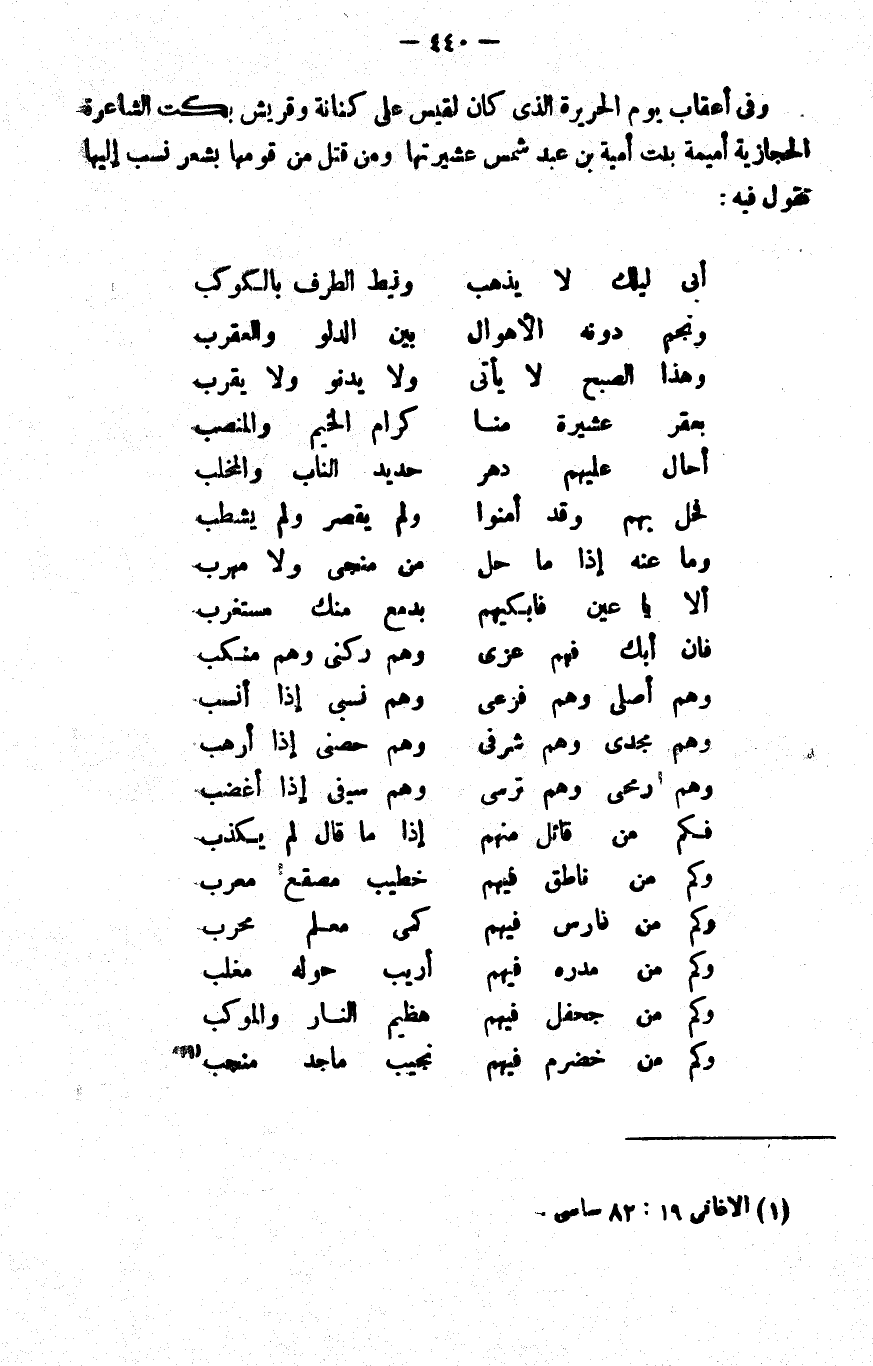 — ٤٤٠ —
وفى أعقاب يوم الحريرة الذى كان لقيس على كنانة وقريش بكت الشاعرة
الحجازية أميمة بنت أمية بن عبد شمس عشيرتها ومن قتل من قومها بشعر نسب إليها
تقول فيه :
أبى ليلك لا يذهب ونيط الطرف بالكوكب
ونجم دونه الأهوال بين الدلو والعقرب
وهذا الصبح لا يأتى ولا يدنو ولا يقرب
بعقر عشيرة منا كرام الخيم والمنصب
أحال عليهم دهر حديد الناب والمخلب
فحل بهم وقد أمنوا ولم يقصر ولم يشطب
وما عنه إذا ما حل من منجى ولا مهرب
ألا يا عين فابكيهم بدمع منك مستغرب
فان أبك فهم عزى وهم ركنى وهم منكب
وهم أصلى وهم فرعى وهم نسبى إذا أنسب
وهم مجدى وهم شرفى وهم حصنى إذا أرهب
وهم رمحى وهم ترسى وهم سيفى إذا أغضب
فكم من قائل منهم إذا ما قال لم يكذب
وكم من ناطق فيهم خطيب مصقع معرب
وكم من فارس فيهم كمى معلم محرب
وكم من مدره فيهم أريب حوله مغلب
وكم من جحفل فيهم عظيم النار والموكب
وكم من خضرم فيهم نجيب ماجد منجب
(١) الاغانى ١٩ : ٨٢ ساسى .